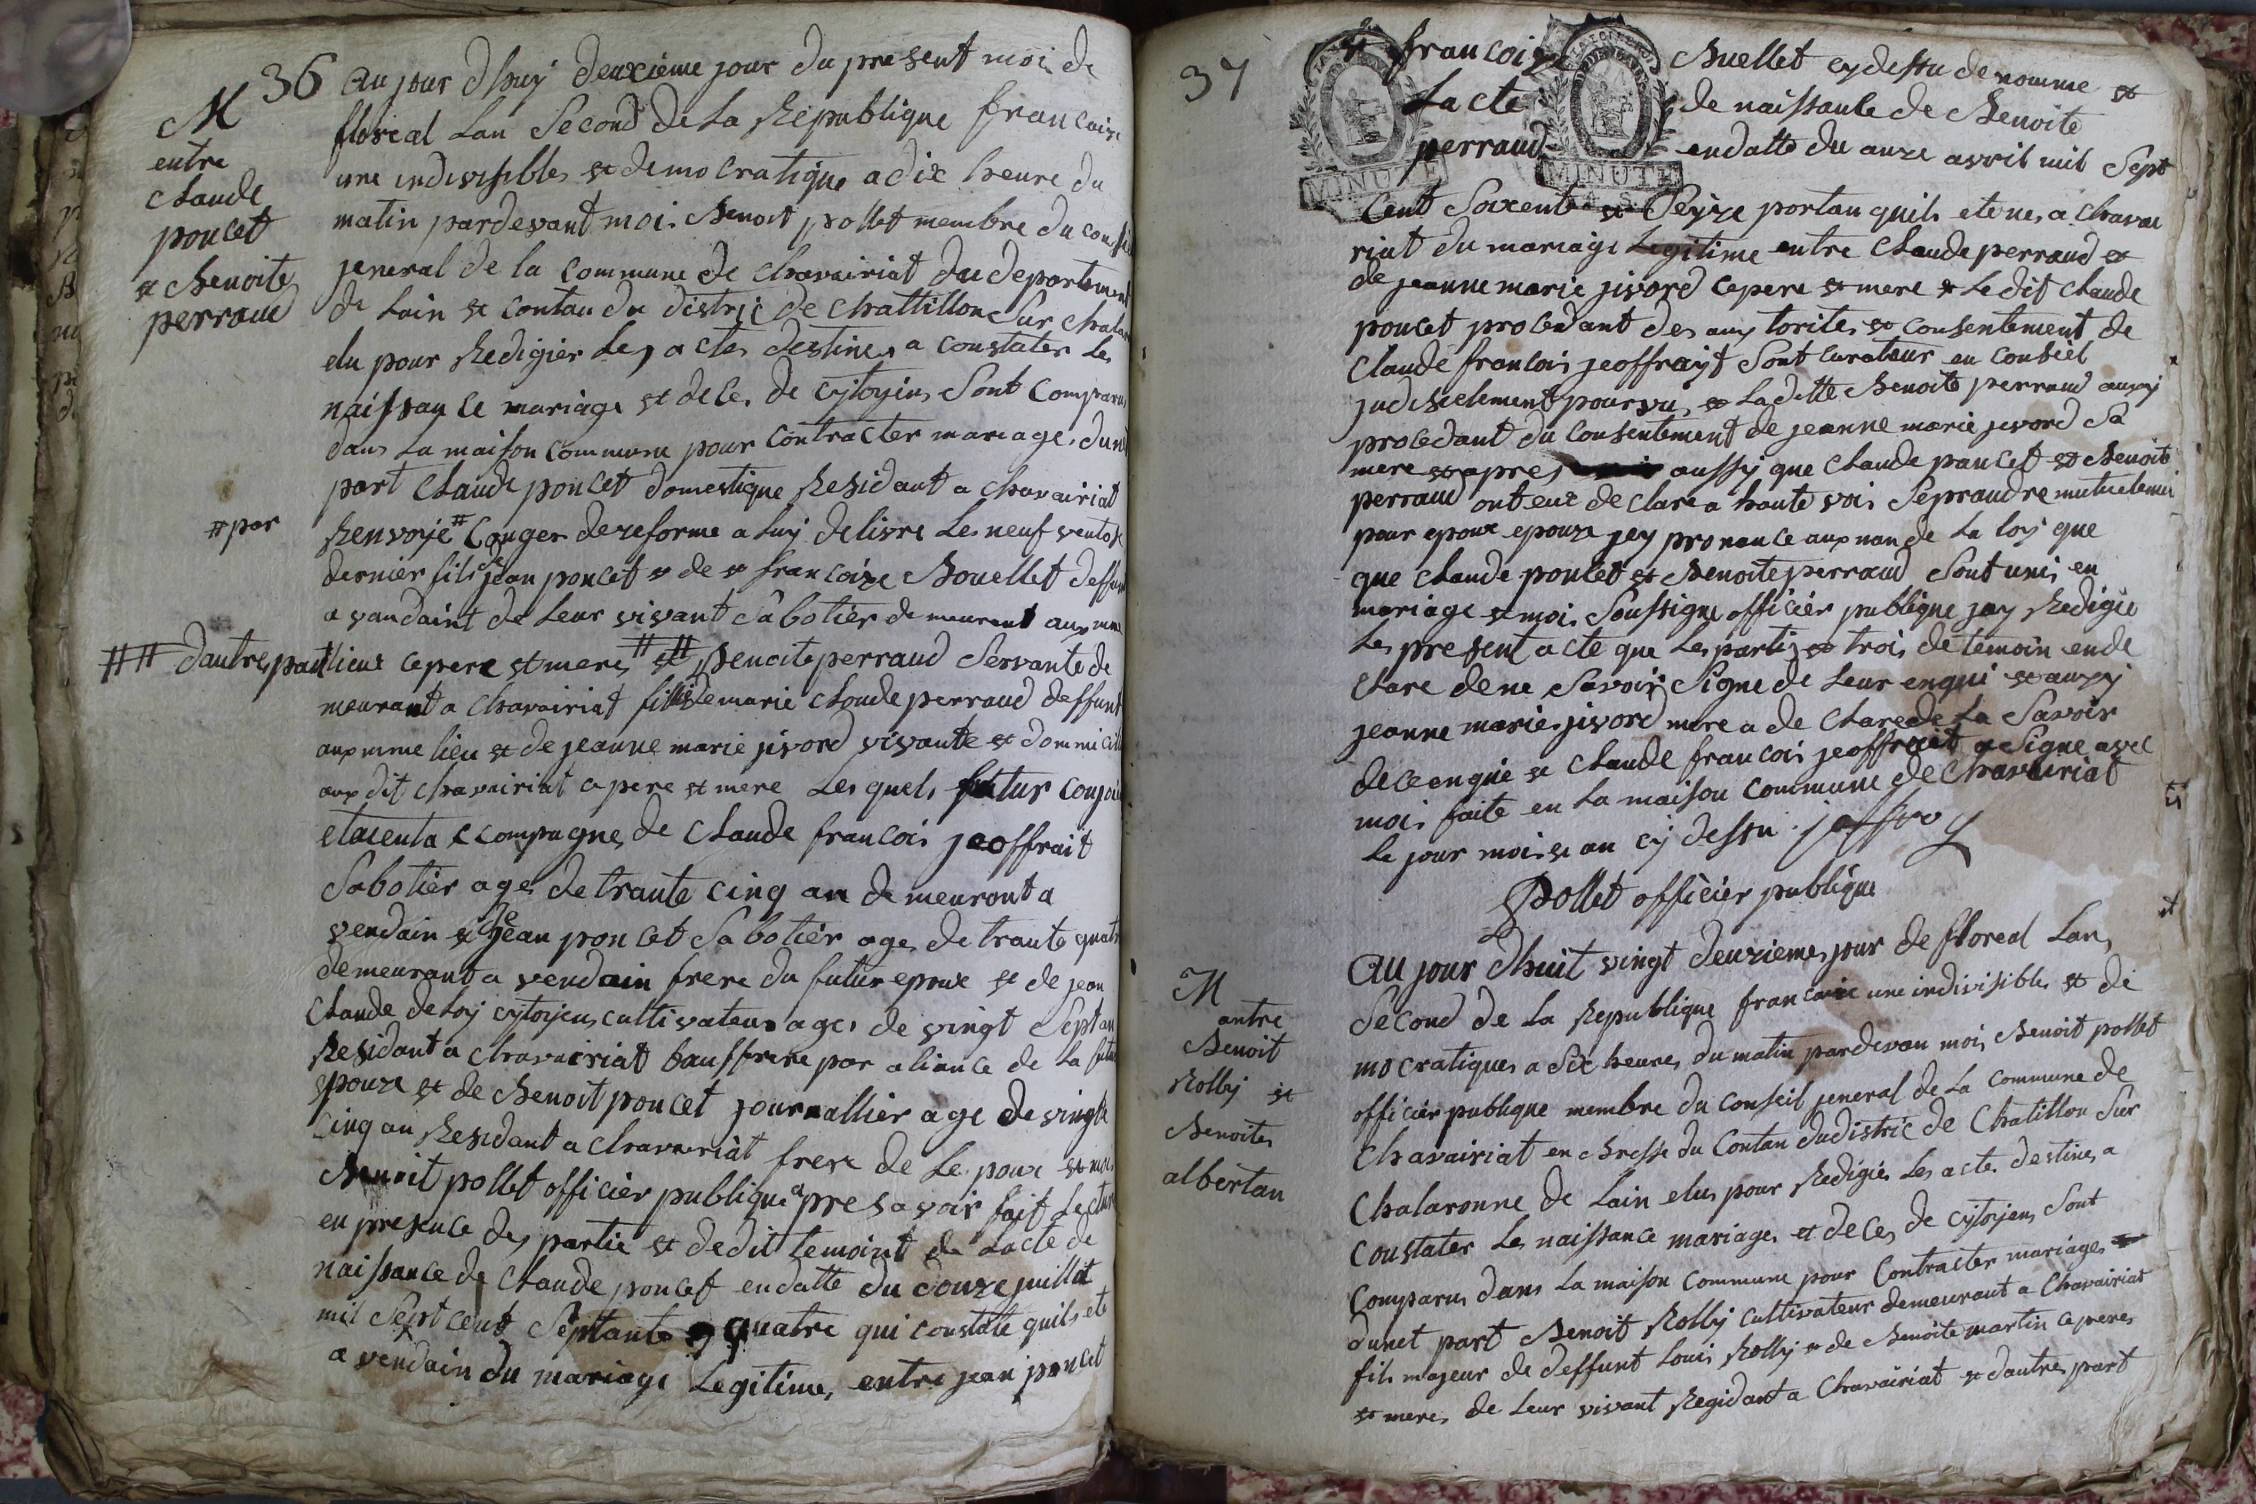 36
M
entre
claude
poncet
et Benoite
perraud
au jour dhuy deuxieme jour du present moi de
floreal Lan Second de La Republique francaise
une indivisible et democratique a dix heure du
matin pardevant moi Benoit pollet membre du conseil
jeneral de la commune de chavairiat du departement
de Lain et contau du distric de chattillon Sur chala
elu pour Redigier Les actes destines a constater Les
naissance mariage et deces de cytoyins Sont Comparu
dans La maison commune pour contracter mariage dune
part claude poncet domestique Residant a chavairiat
#par
Renvoye # Conger de reforme a luy delivre Le neuf ventose
dernier fils de jean poncet et de francoize Bouellet deffun
a vandaint de Leur vivant Sabotier demeurant aux meme
## dautre part
lieux ce pere et mere ## et Benoite perraud Servante de
meurant a chavairiat fille de marie claude perraud deffunt
aux meme lieu et de jeanne marie jivord vivante et dommicilie
aux dit chavairiat ce pere et mere Les quels futur conjoin
etacenta ccompagne de claude francois jeoffrait
Sabotier age de trante cinq an demeuront a
vendain et de jean poncet Sabotier age de trante quatre
demeurant a vendain frere du futur epoux et de jean
claude deloy cytoyen cultivateur age de vingt Sept an
Residant a chavairiat bauffrere par aliance de La futur
epouze et de Benoit poncet journallier age de vingt
Cinq an Residant a chavairiat frere de Le poux et moi
Benoit pollet officier publique apres avoir fait Lectur
en presence des partie et dedit temoint de Lacte de
naissance de claude poncet endatte du douze juillet
mil Sept cent Septante quatre qui constate quils ete
a vendain du mariage Legitime entre jean poncet
37
et francoize Buellet cy dessu denomme et
Lacte de naissante de Benoite
perraud endatte du onze avril mil Sept
MINUTE MINUTE
Cent Soixente et Seyze portan quils ete nes a chavai
riat du mariage Legitime entre claude perraud et
de jeanne marie jivord ce pere et mere et Le dit claude
poncet procedant des aux torites et consentement de
claude francois jeoffrayt Sont curateur en conseil
judisielement pourvu et La ditte Benoite perraud aussy
procedant du consentement de jeanne marie jivord Sa
mere et apres aussy que claude poncet et Benoite
perraud ont eux declare a haute voi Seprandre mutuelemen
pour epoux epouze jey prononce aux nom de La loy que
que claude poncet et Benoite perraud Sont uni en
mariage et moi Soussigne officier publique jay Redigie
Le present acte que Les partie et trois de temoin on de
clare de ne Savoir Signe de Leur enqui et aussy
jeanne marie jivord mere a declare de La Savoir
de ce enquie et claude francois jeoffrait a Signe avec
moi faite en La maison commune de chavairiat
Le jour moi et an cy dessu. jeffroy
Pollet officier publique
M
antre
Benoit
Rolby et
Benoite
albertan
au jour dhuit vingt deuzieme jour de floreal Lan
Second de La Republique francaise une indivisible et de
mocratique a Six heure du matin pardevan moi Benoit pollet
officier publique membre du conseil jeneral de La commune de
chavairiat en Bresse du Contau du distric de Chatillon Sur
Chalaronne de Lain elu pour Redigie Les acte destine a
Constater Le naissance mariage et deces de cytoyen Sont
Comparu dans La maison commune pour Contracter mariage
dunet part Benoit Rolby cultivateur demeurant a chavairiat
fils majeur de deffunt Loui Rolby et de Benoite martin ce pere
et mere de Leur vivant Regidant a Chavairiat et dautre part